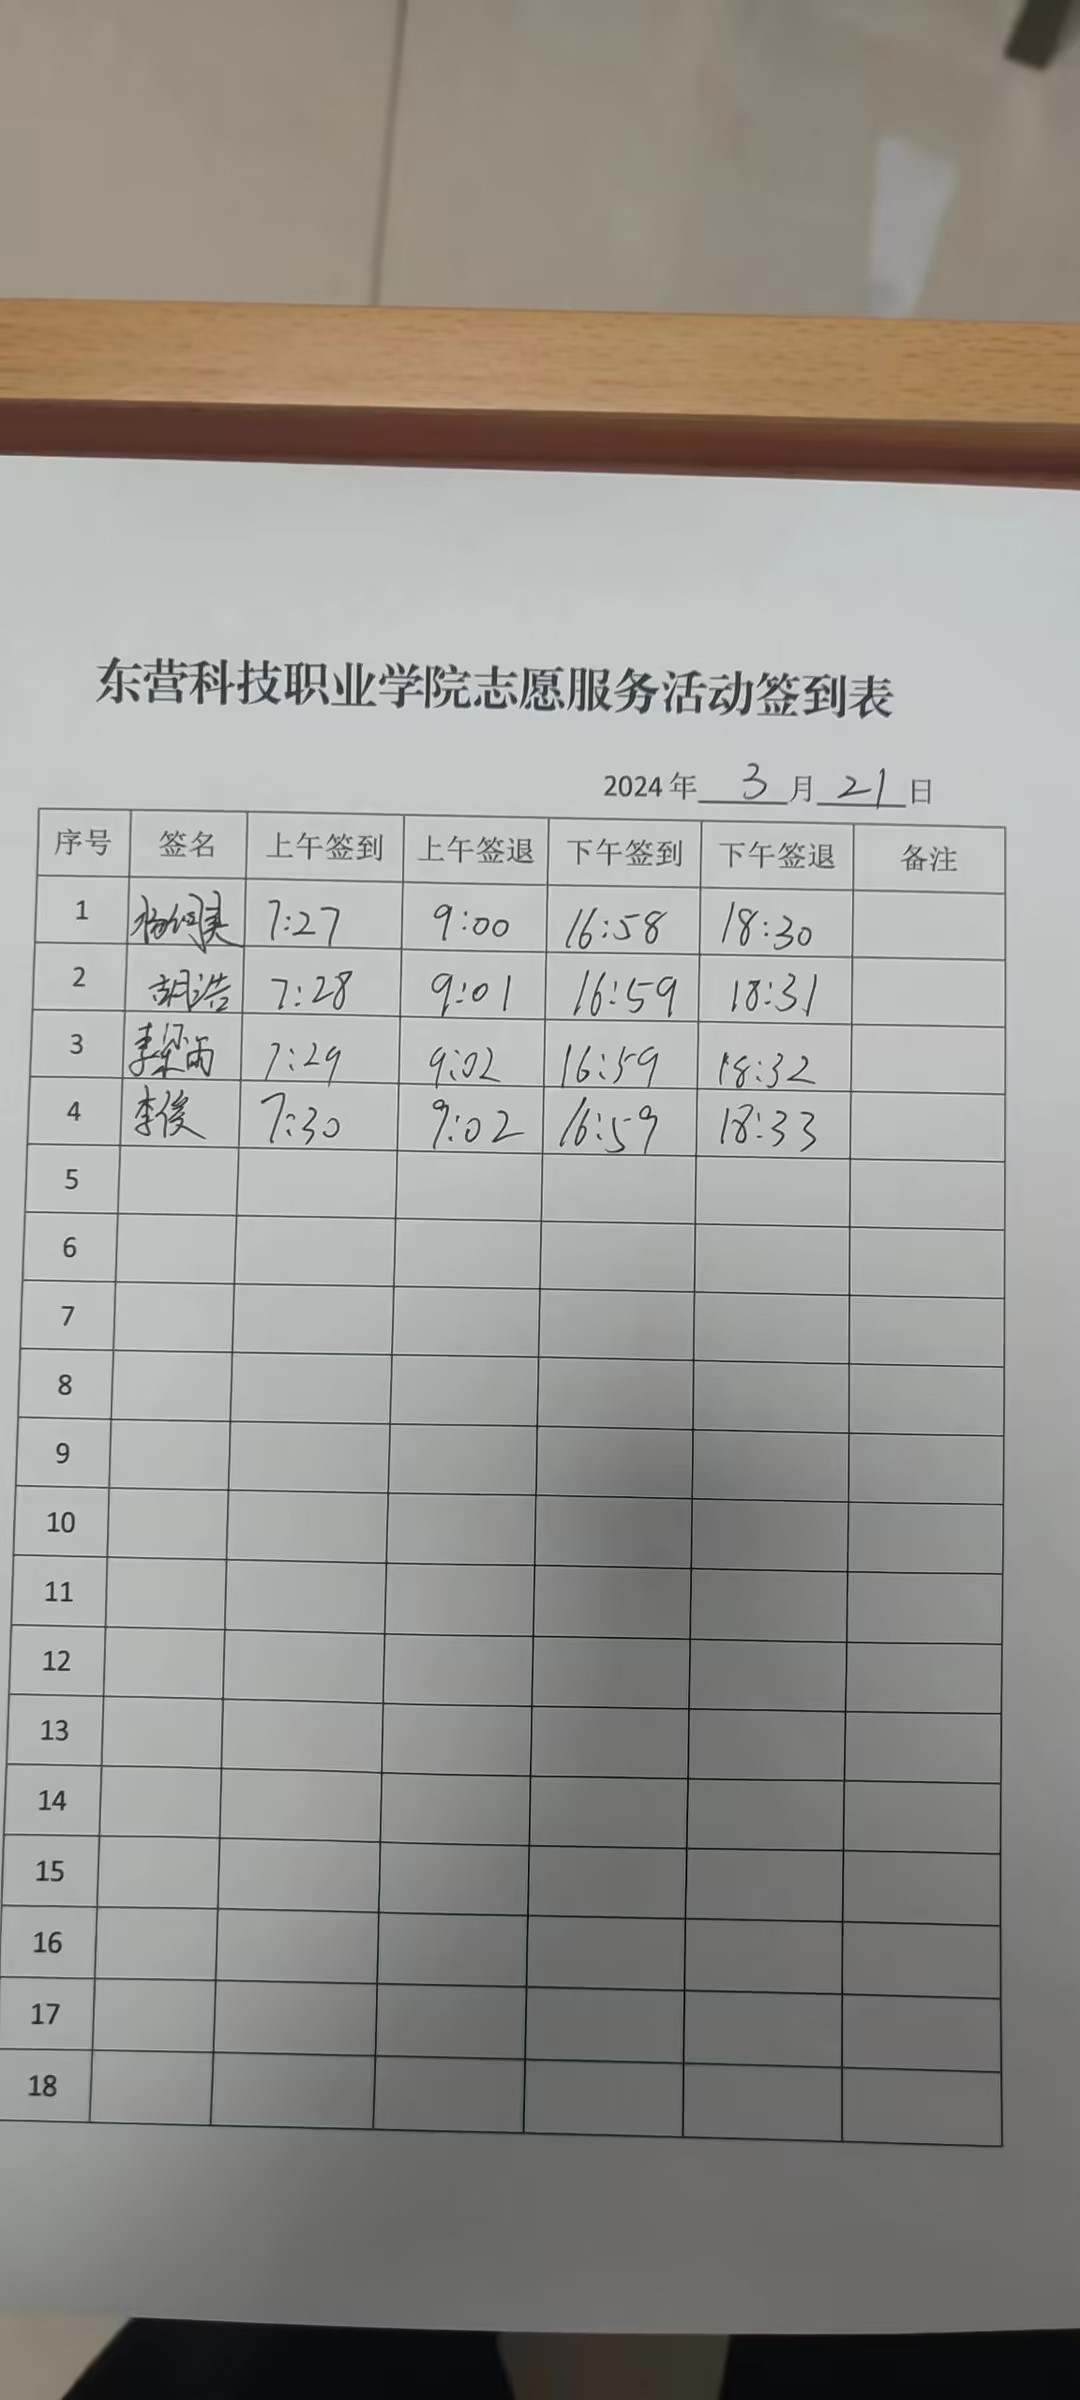 东营科技职业学院志愿服务活动签到表
2024 年 3 月 21 日
序号 签名 上午签到 上午签退 下午签到 下午签退 备注
1 7:27 9:00 16:58 18:30
2 胡浩 7:28 9:01 16:59 18:31
3 李 雨 7:29 9:02 16:59 18:32
4 李俊 7:30 9:02 16:59 18:33
5
6
7
8
9
10
11
12
13
14
15
16
17
18